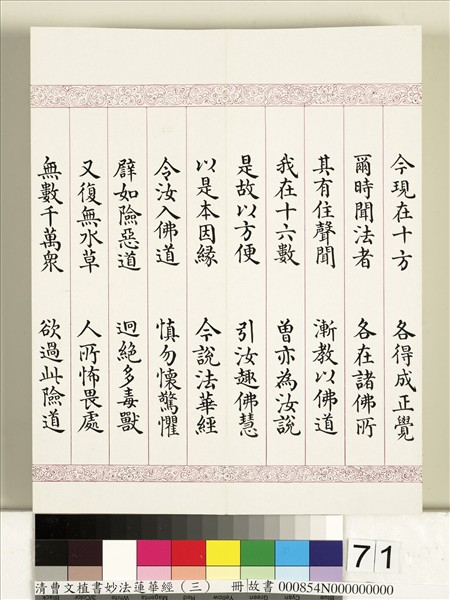 今現在十方 各得成正覺
爾時聞法者 各在諸佛所
其有住聲聞 漸教以佛道
我在十六數 曾亦為汝說
是故以方便 引汝趣佛慧
以是本因緣 今說法華經
令汝入佛道 慎勿懷驚懼
譬如險惡道 迥絕多毒獸
又復無水草 人所怖畏處
無數千萬眾 欲過此險道
71
清曹文植書妙法蓮華經（三） 冊 故書 000854N000000000